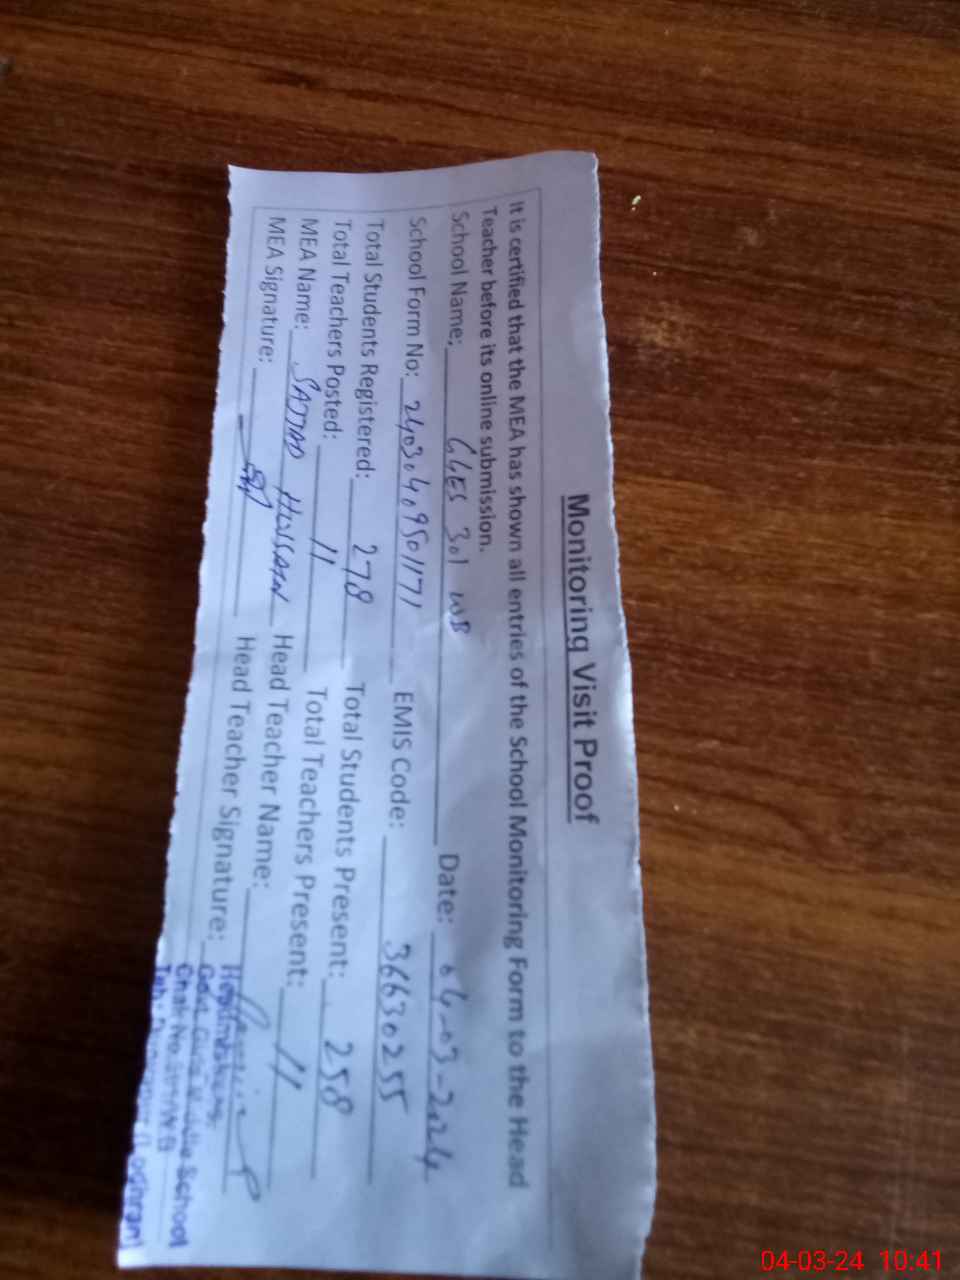 Monitoring Visit Proof
It is certified that the MEA has shown all entries of the School Monitoring Form to the Head
Teacher before its online submission.
School Name: GGES 301 WB Date: 04-03-2024
School Form No: 24030409501171 EMIS Code: 36630255
Total Students Registered: 278 Total Students Present: 258
Total Teachers Posted: 11 Total Teachers Present: 11
MEA Name: SAJJAD HUSSAIN Head Teacher Name:
MEA Signature: Head Teacher Signature:
Headmistress
Govt. Girls Middle School
Chak No. 301/W.B
Teh: (Lodhran)
04-03-24 10:41